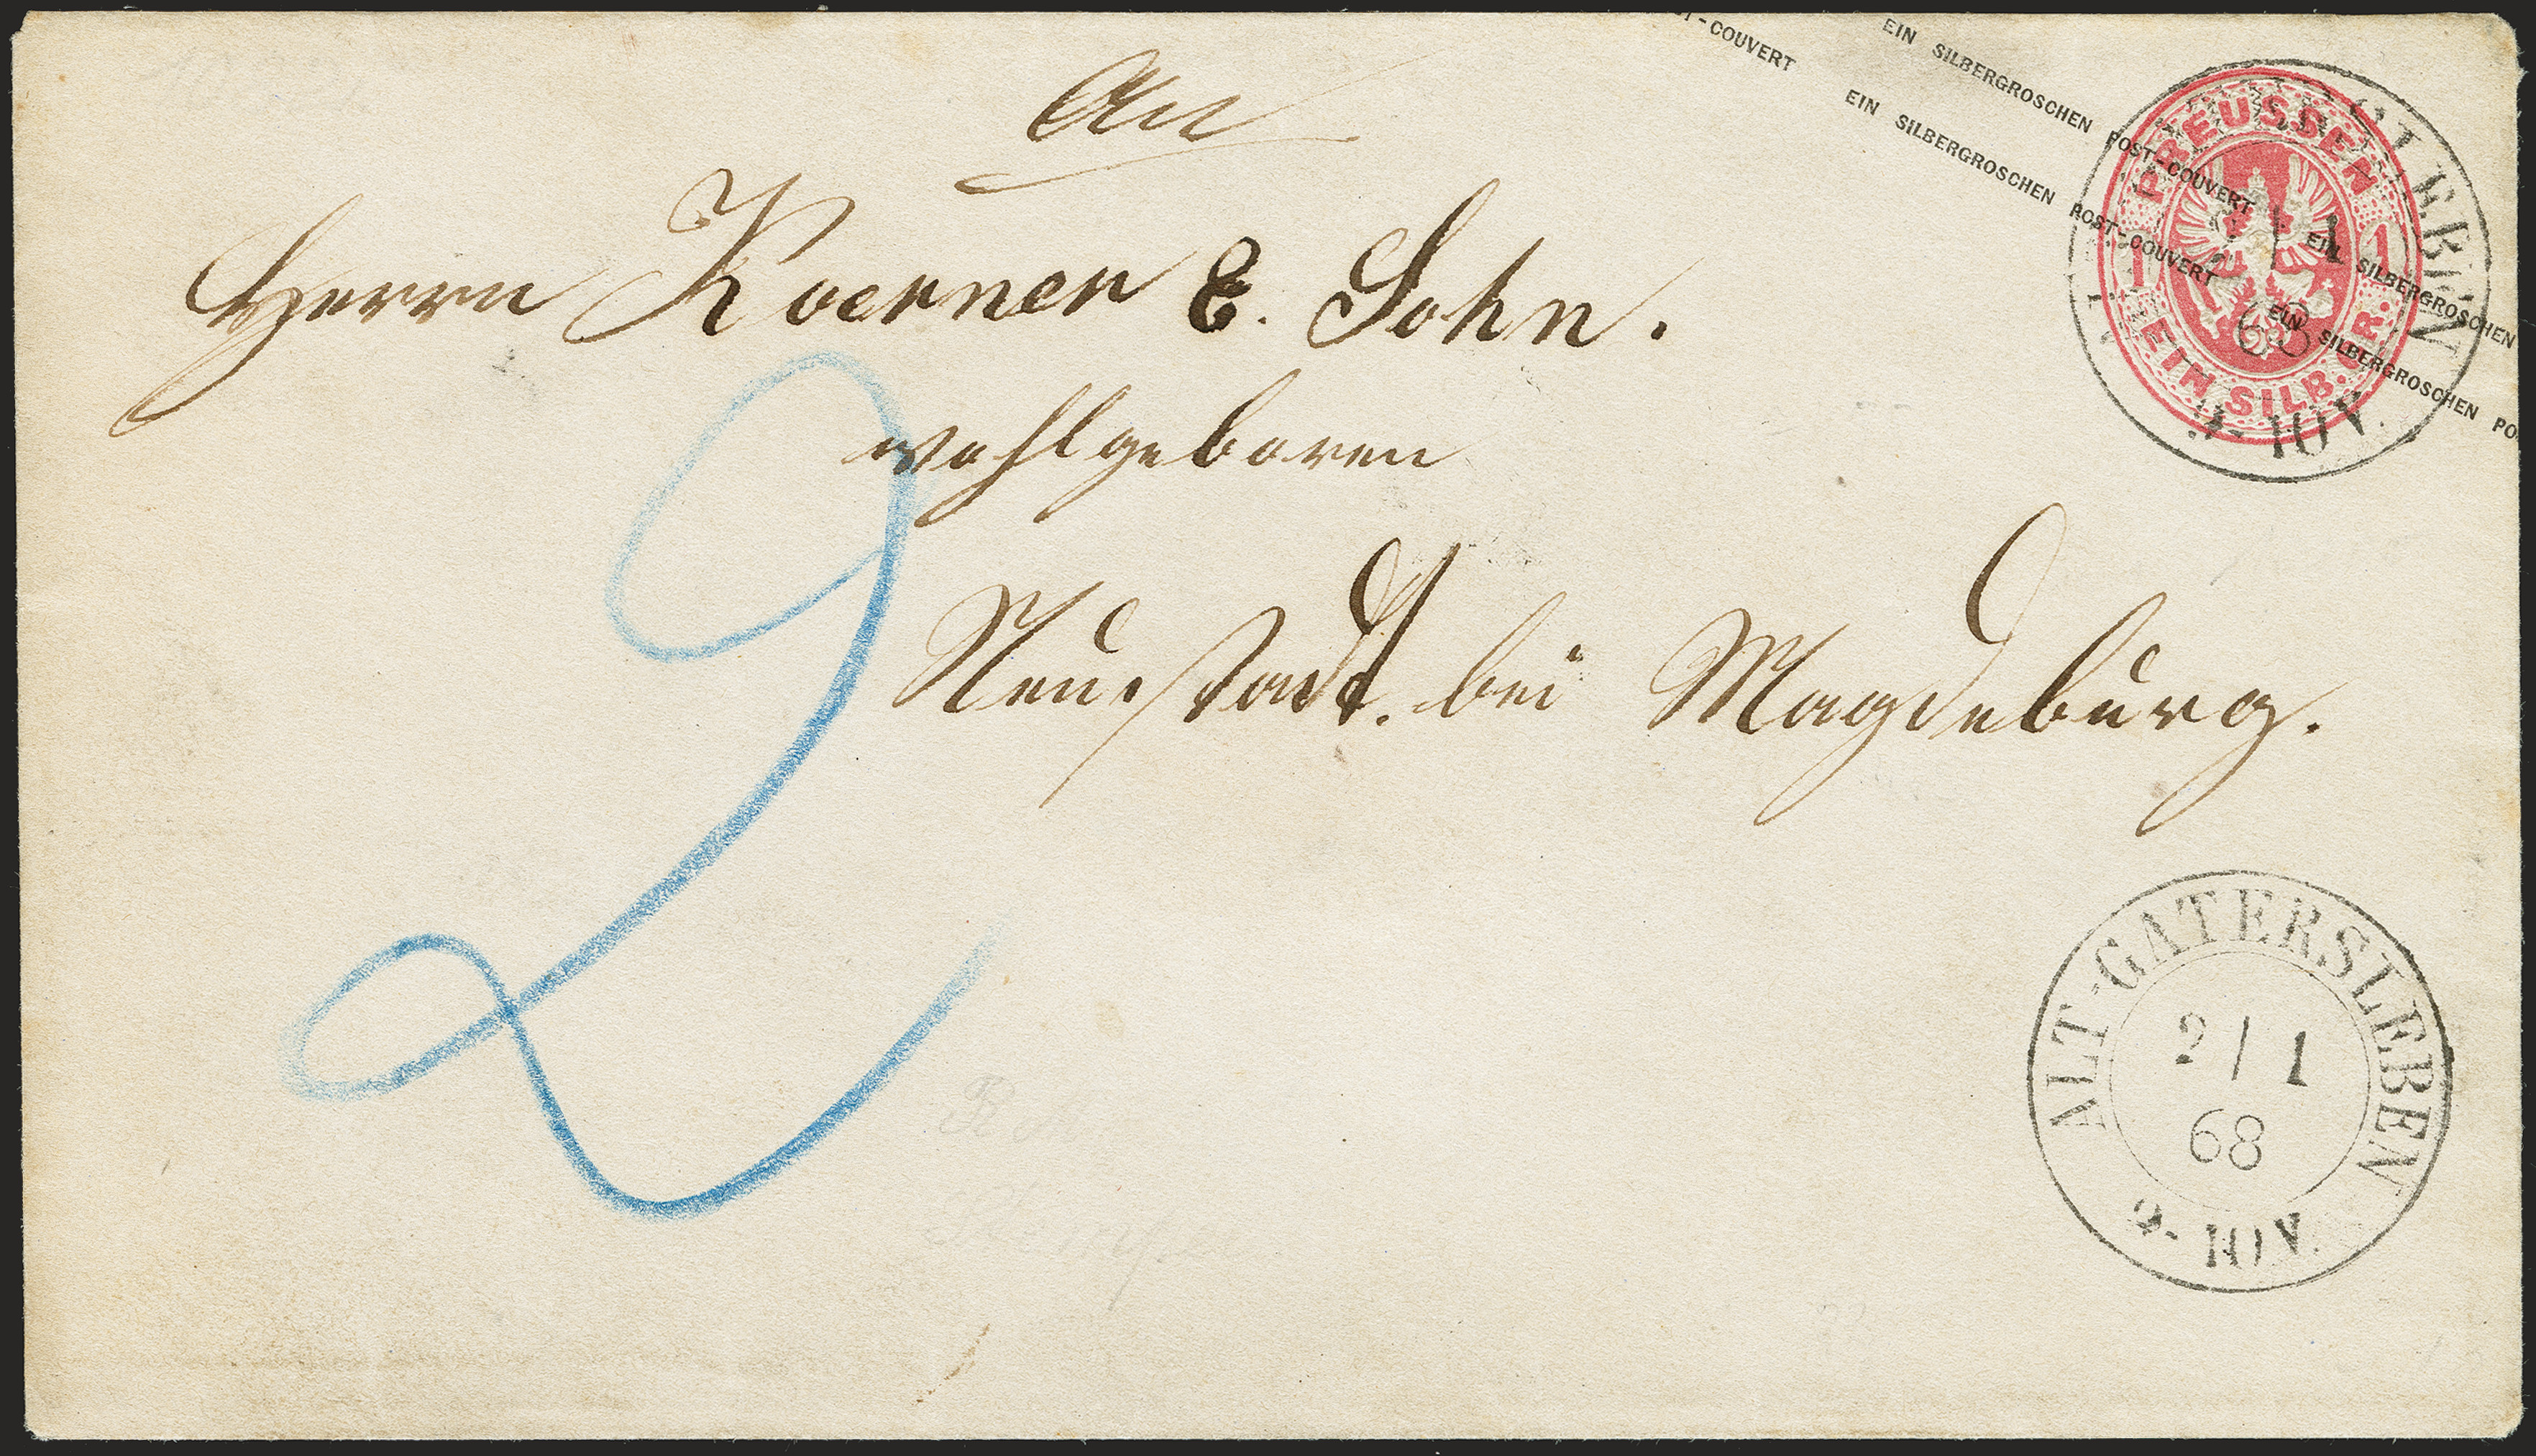 An
Herrn Koerner & Sohn.
wohlgeboren
Neustadt. bei Magdeburg.
2
T-COUVERT
EIN SILBERGROSCHEN POST-COUVERT EIN SILBERGROSCHEN
EIN SILBERGROSCHEN POST-COUVERT EIN SILBERGROSCHEN PO
PREUSSEN
1 1
EIN SILB. GR.
SLEBEN
1
68
9- 10 V.
ALT-GATERSLEBEN
2 / 1
68
9- 10 V.